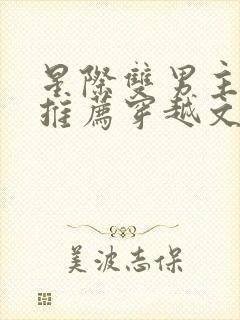 星際雙男主
推薦穿越文
美波志保